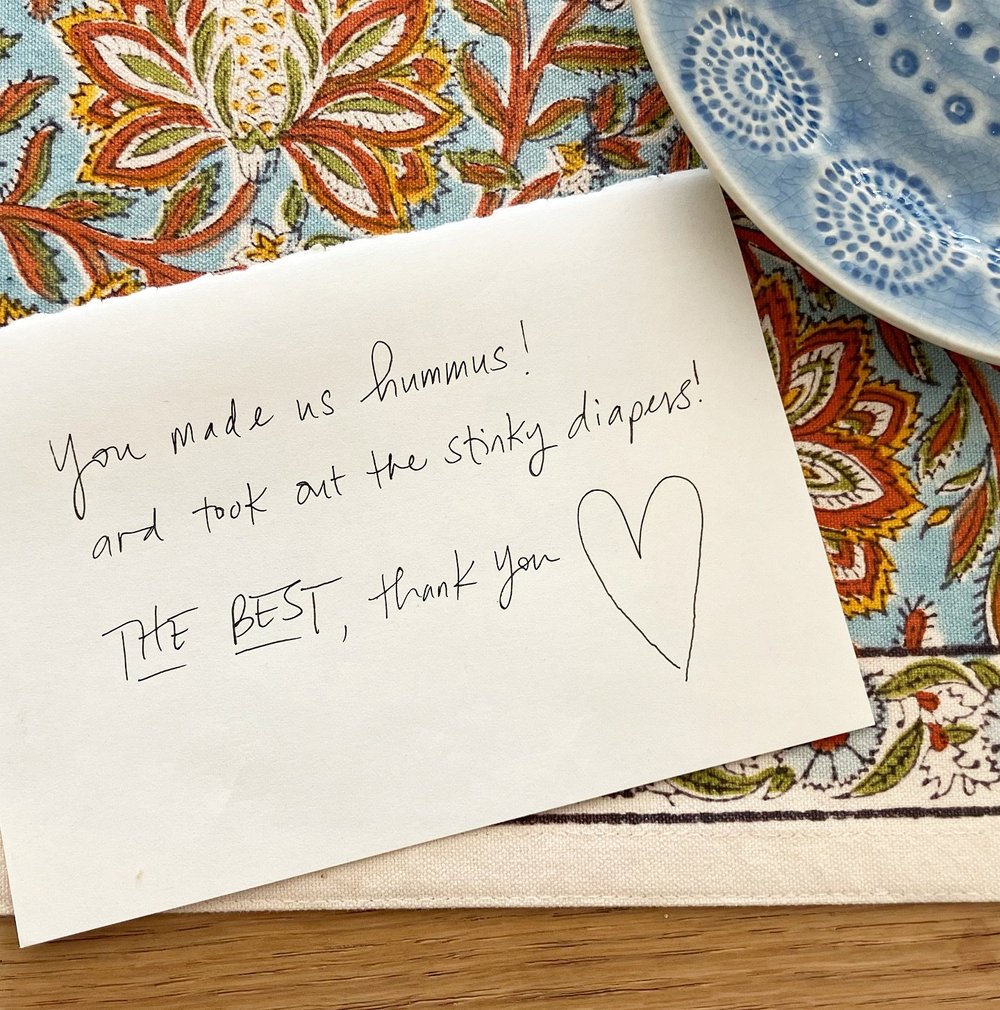 You made us hummus!
and took out the stinky diapers!
THE BEST, thank you